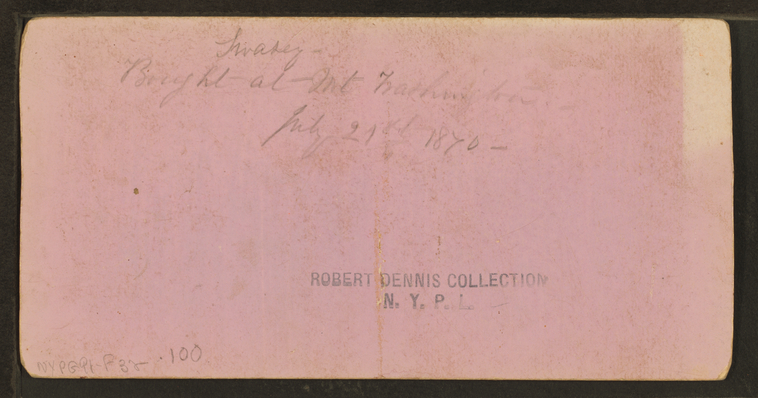 Swasey
Bought at Mt Washington.
July 21st 1870
ROBERT DENNIS COLLECTION
N. Y. P. L.
NYPG91-F32 .100